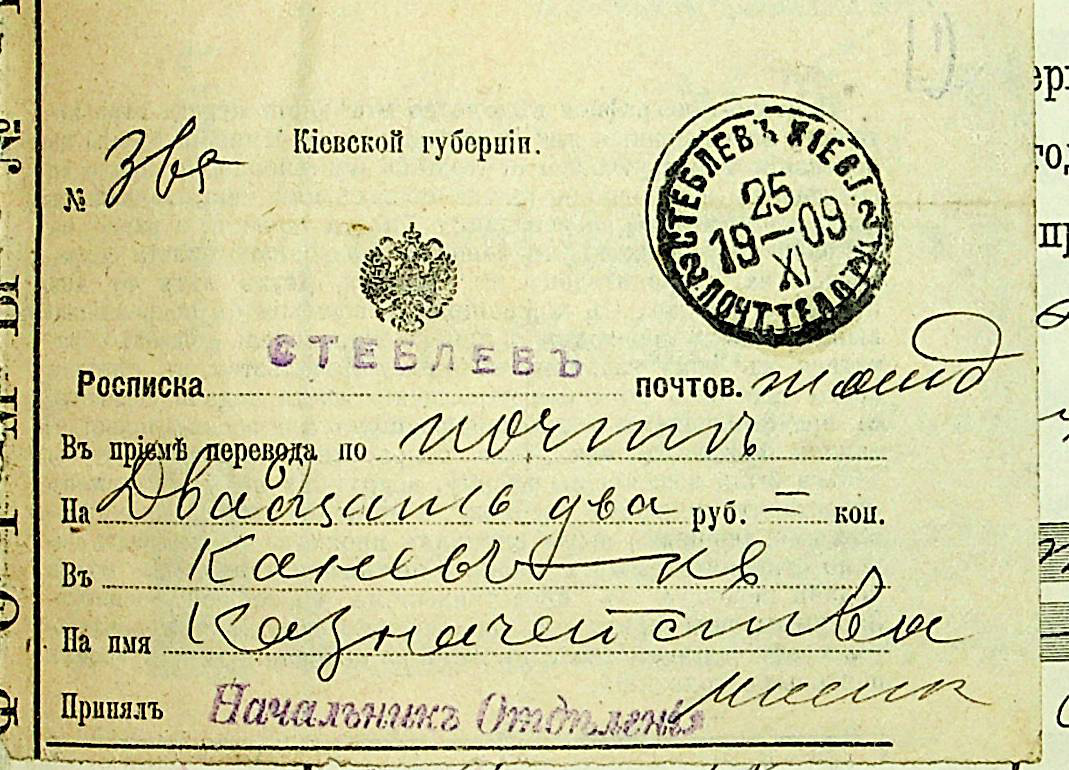 Кіевской губерніи.
№
СТЕБЛЕВЪ КІЕВ.
25
19—09
XI
ПОЧТ. ТЕЛ.
СТЕБЛЕВЪ
Росписка почтов.
Въ пріемѣ перевода по почтѣ
На Двадцать два руб. = коп.
Въ Каневъ
На имя Казначейства
Принялъ Начальникъ Отдѣленія